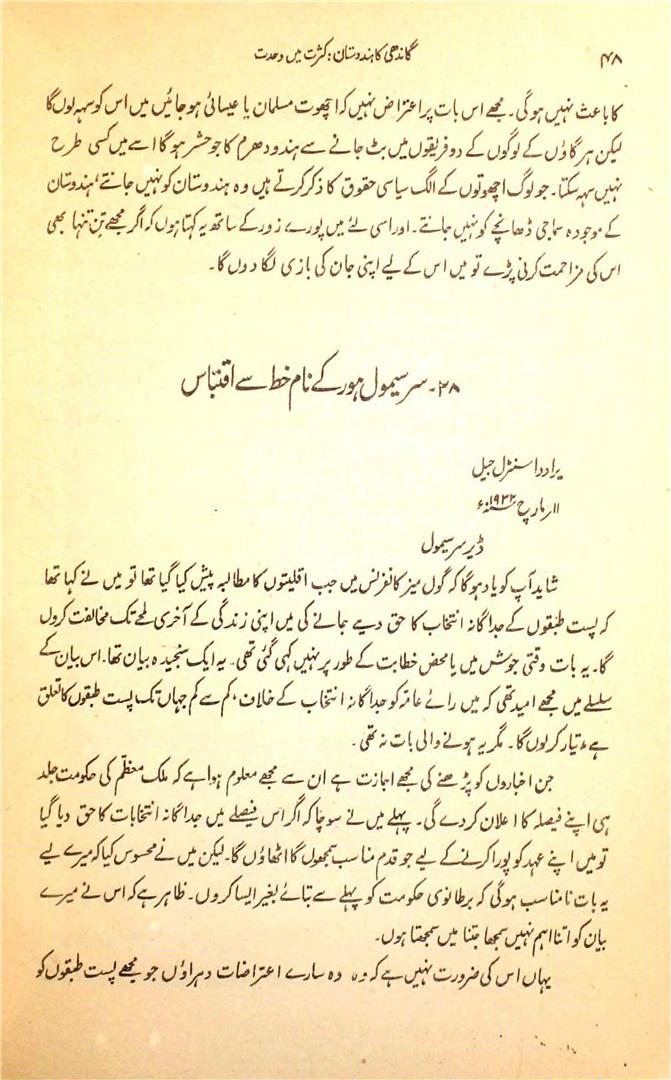 ۴۸ گاندھی کا ہندوستان: کثرت میں وحدت
کا باعث نہیں ہوگی۔ مجھے اس بات پر اعتراض نہیں کہ اچھوت مسلمان یا عیسائی ہو جائیں میں اس کو سہہ لوں گا
لیکن ہر گاؤں کے لوگوں کے دو فریقوں میں بٹ جانے سے ہندو دھرم کا جو حشر ہوگا اسے میں کسی طرح
نہیں سہہ سکتا۔ جو لوگ اچھوتوں کے الگ سیاسی حقوق کا ذکر کرتے ہیں وہ ہندوستان کو نہیں جانتے‘ ہندوستان
کے موجودہ سماجی ڈھانچے کو نہیں جانتے۔ اور اسی لئے میں پورے زور کے ساتھ یہ کہتا ہوں کہ اگر مجھے تن تنہا بھی
اس کی مزاحمت کرنی پڑے تو میں اس کے لیے اپنی جان کی بازی لگا دوں گا۔
۲۸۔ سر سیمول ہور کے نام خط سے اقتباس
یراودا سنٹرل جیل
۱۱ر مارچ ۱۹۳۲ء
ڈیر سر سیمول
شاید آپ کو یاد ہوگا کہ گول میز کانفرنس میں جب اقلیتوں کا مطالبہ پیش کیا گیا تھا تو میں نے کہا تھا
کہ پست طبقوں کے جداگانہ انتخاب کا حق دیے جانے کی میں اپنی زندگی کے آخری لمحے تک مخالفت کروں
گا۔ یہ بات وقتی جوش میں یا محض خطابت کے طور پر نہیں کہی گئی تھی۔ یہ ایک سنجیدہ بیان تھا۔ اس بیان کے
سلسلے میں مجھے امید تھی کہ میں رائے عامہ کو جداگانہ انتخاب کے خلاف، کم سے کم جہاں تک پست طبقوں کا تعلق
ہے، تیار کر لوں گا۔ مگر یہ ہونے والی بات نہ تھی۔
جن اخباروں کو پڑھنے کی مجھے اجازت ہے ان سے مجھے معلوم ہوا ہے کہ ملک معظم کی حکومت جلد
ہی اپنے فیصلہ کا اعلان کر دے گی۔ پہلے میں نے سوچا کہ اگر اس فیصلے میں جداگانہ انتخابات کا حق دیا گیا
تو میں اپنے عہد کو پورا کرنے کے لیے جو قدم مناسب سمجھوں گا اٹھاؤں گا۔ لیکن میں نے محسوس کیا کہ میرے لیے
یہ بات نامناسب ہوگی کہ برطانوی حکومت کو پہلے سے بتائے بغیر ایسا کروں۔ ظاہر ہے کہ اس نے میرے
بیان کو اتنا اہم نہیں سمجھا جتنا میں سمجھتا ہوں۔
یہاں اس کی ضرورت نہیں ہے کہ وہ وہ سارے اعتراضات دہراؤں جو مجھے پست طبقوں کو